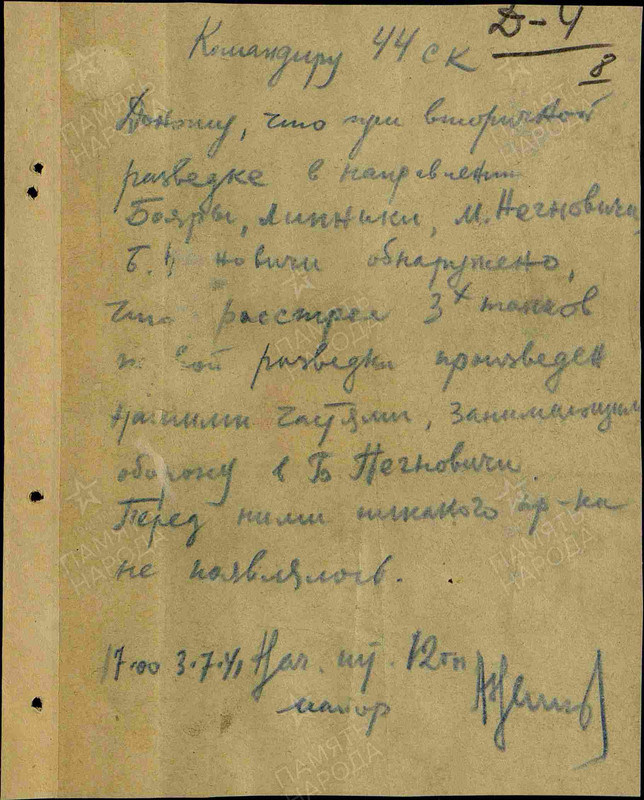 Д-4
8
Командиру 44 СК
Доношу, что при вторичной
разведке в направлении
Бояры, Липники, М. Негновичи,
Б. новичи обнаружено,
что расстрел 3х танков
разведки произведен
нашими частями, занимающими
оборону в Б Негновичи
Перед ними никакого пр-ка
не появлялось.
17.00 3.7.41 Нач. шт. 12тп
майор
ПАМЯТЬ НАРОДА